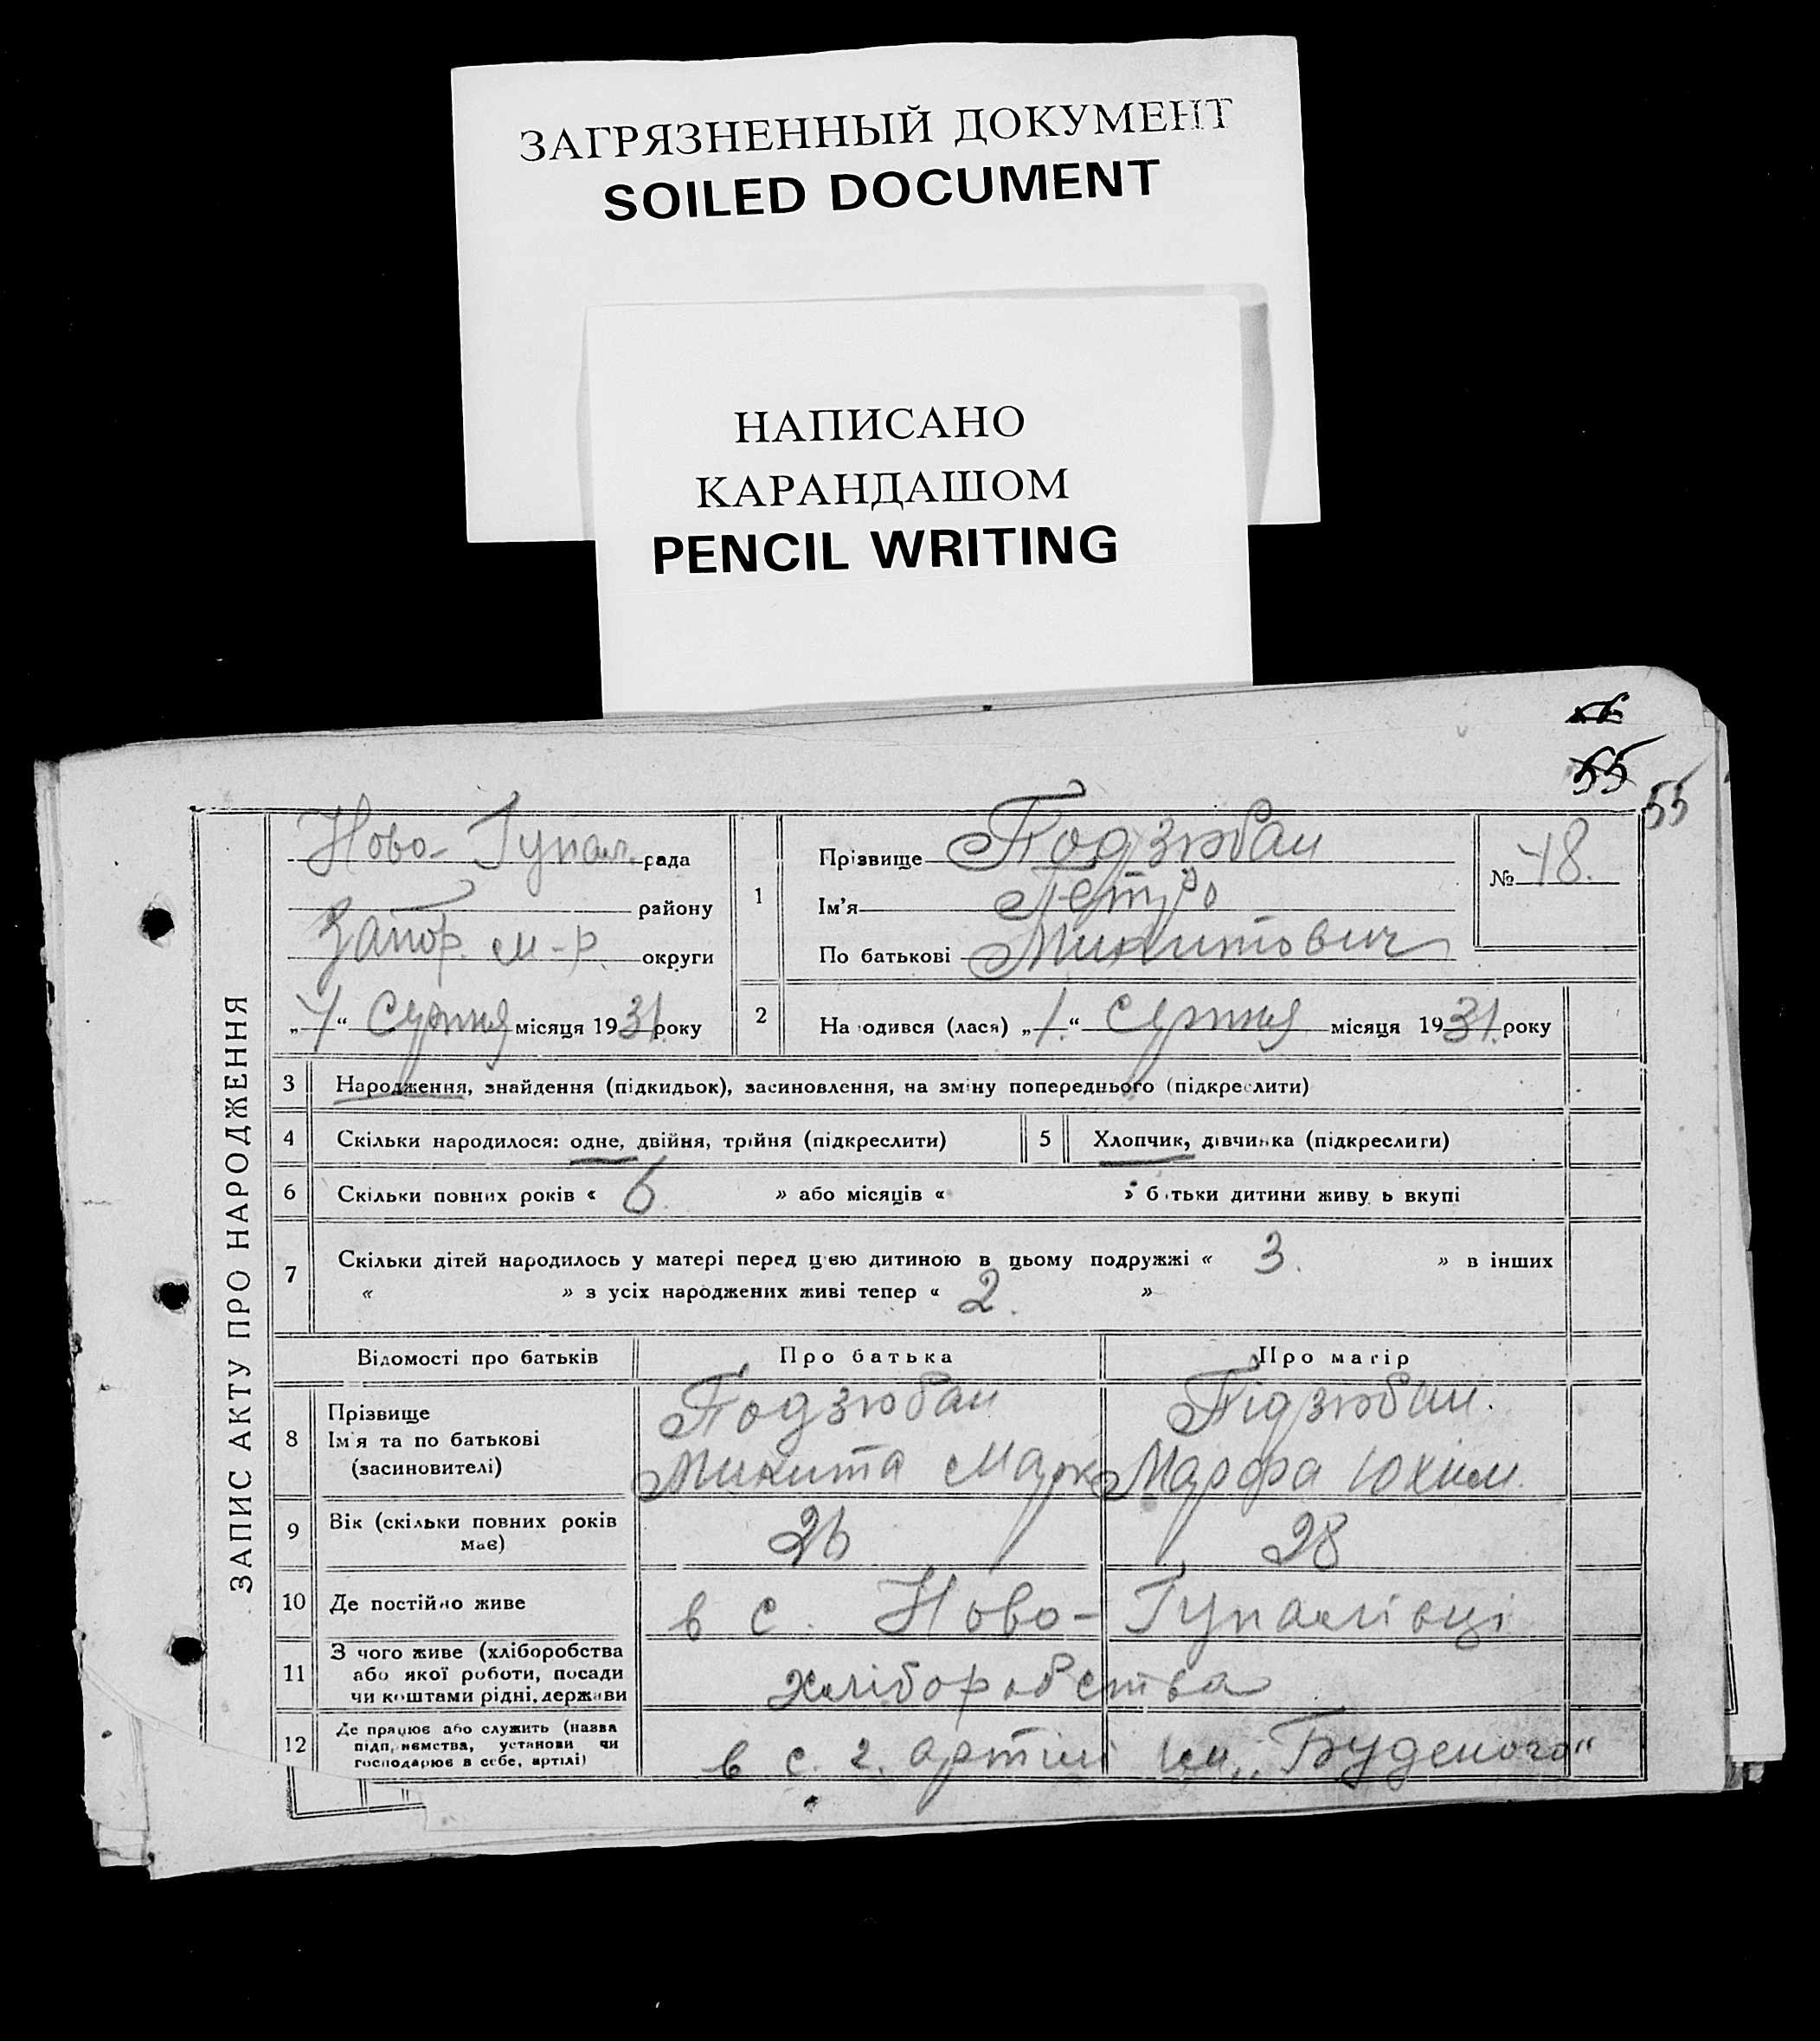 ЗАГРЯЗНЕННЫЙ ДОКУМЕНТ
SOILED DOCUMENT
НАПИСАНО
КАРАНДАШОМ
PENCIL WRITING
55
55
ЗАПИС АКТУ ПРО НАРОДЖЕННЯ
Ново-Гупал. рада
району
Запор. м-р. округи
„ “ Серпня місяця 1931 року
1 Прізвище Подзюбан
Ім'я Петро
По батькові Микитович
№ 48.
2 На одився (лася) „1.“ Серпня місяця 1931. року
3 Народження, знайдення (підкидьок), засиновлення, на зміну попереднього (підкреслити)
4 Скільки народилося: одне, двійня, трійня (підкреслити) 5 Хлопчик, дівчинка (підкреслити)
6 Скільки повних років « 6. » або місяців « » б тьки дитини живу ь вкупі
7 Скільки дітей народилось у матері перед цією дитиною в цьому подружжі « 3. » в інших
« » з усіх народжених живі тепер « 2. »
Відомості про батьків Про батька Про матір
8 Прізвище Подзюбан Підзюбан.
Ім'я та по батькові
(засиновителі) Микита Марк Марфа Юхим.
9 Вік (скільки повних років має) 26 28
10 Де постійно живе в с. Ново-Гупалівці
11 З чого живе (хліборобства
або якої роботи, посади
чи коштами рідні, держави хліборобства
12 Де працює або служить (назва
підп, иємства, установи чи
господарює в себе, артілі) в с. г. артілі ім „Буденого“